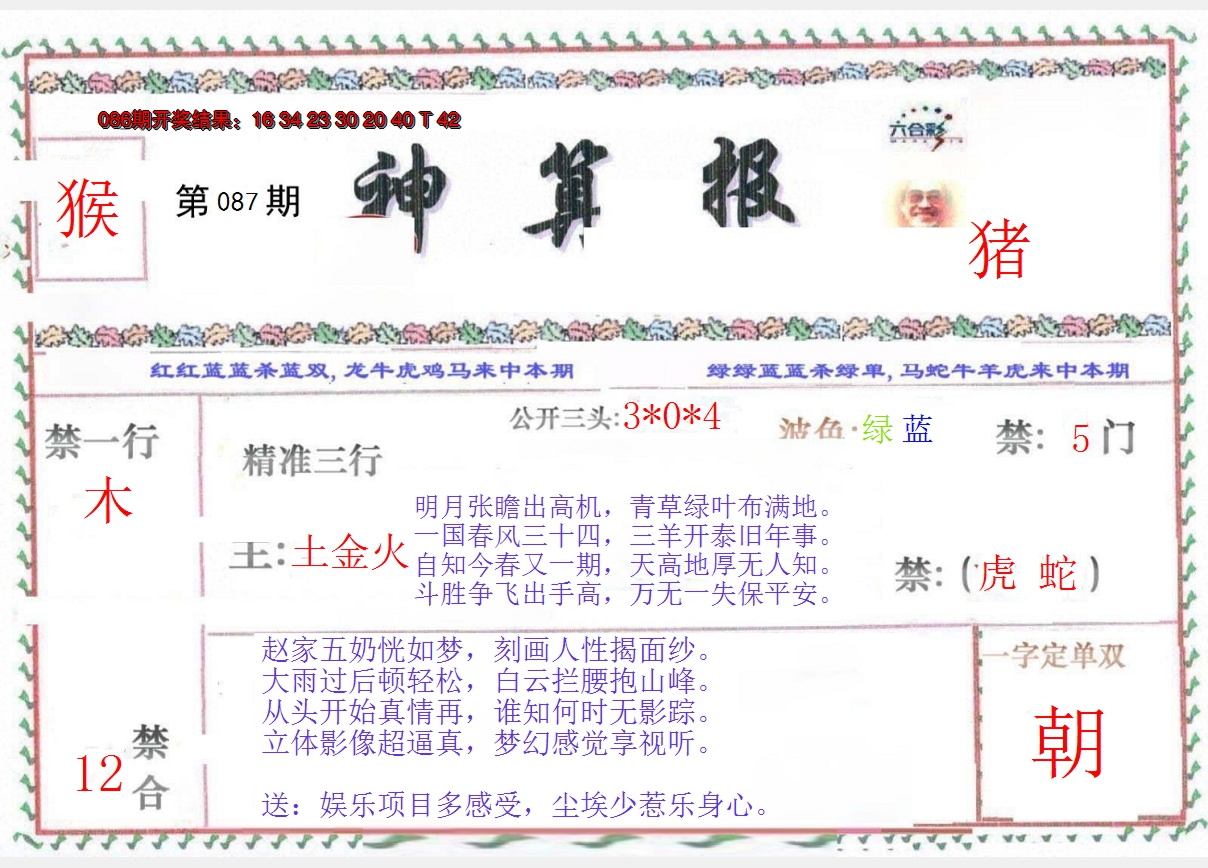 086期开奖结果：16 34 23 30 20 40 T 42
六合彩
猴
第 087 期
神 算 报
猪
红红蓝蓝杀蓝双,龙牛虎鸡马来中本期
绿绿蓝蓝杀绿单,马蛇牛羊虎来中本期
禁一行
木
精准三行
公开三头:3*0*4
波色·绿 蓝
禁: 5门
明月张瞻出高机，青草绿叶布满地。
一国春风三十四，三羊开泰旧年事。
主:土金火
自知今春又一期，天高地厚无人知。
斗胜争飞出手高，万无一失保平安。
禁:(虎 蛇)
赵家五奶恍如梦，刻画人性揭面纱。
大雨过后顿轻松，白云拦腰抱山峰。
从头开始真情再，谁知何时无影踪。
立体影像超逼真，梦幻感觉享视听。
送：娱乐项目多感受，尘埃少惹乐身心。
一字定单双
朝
12
禁合